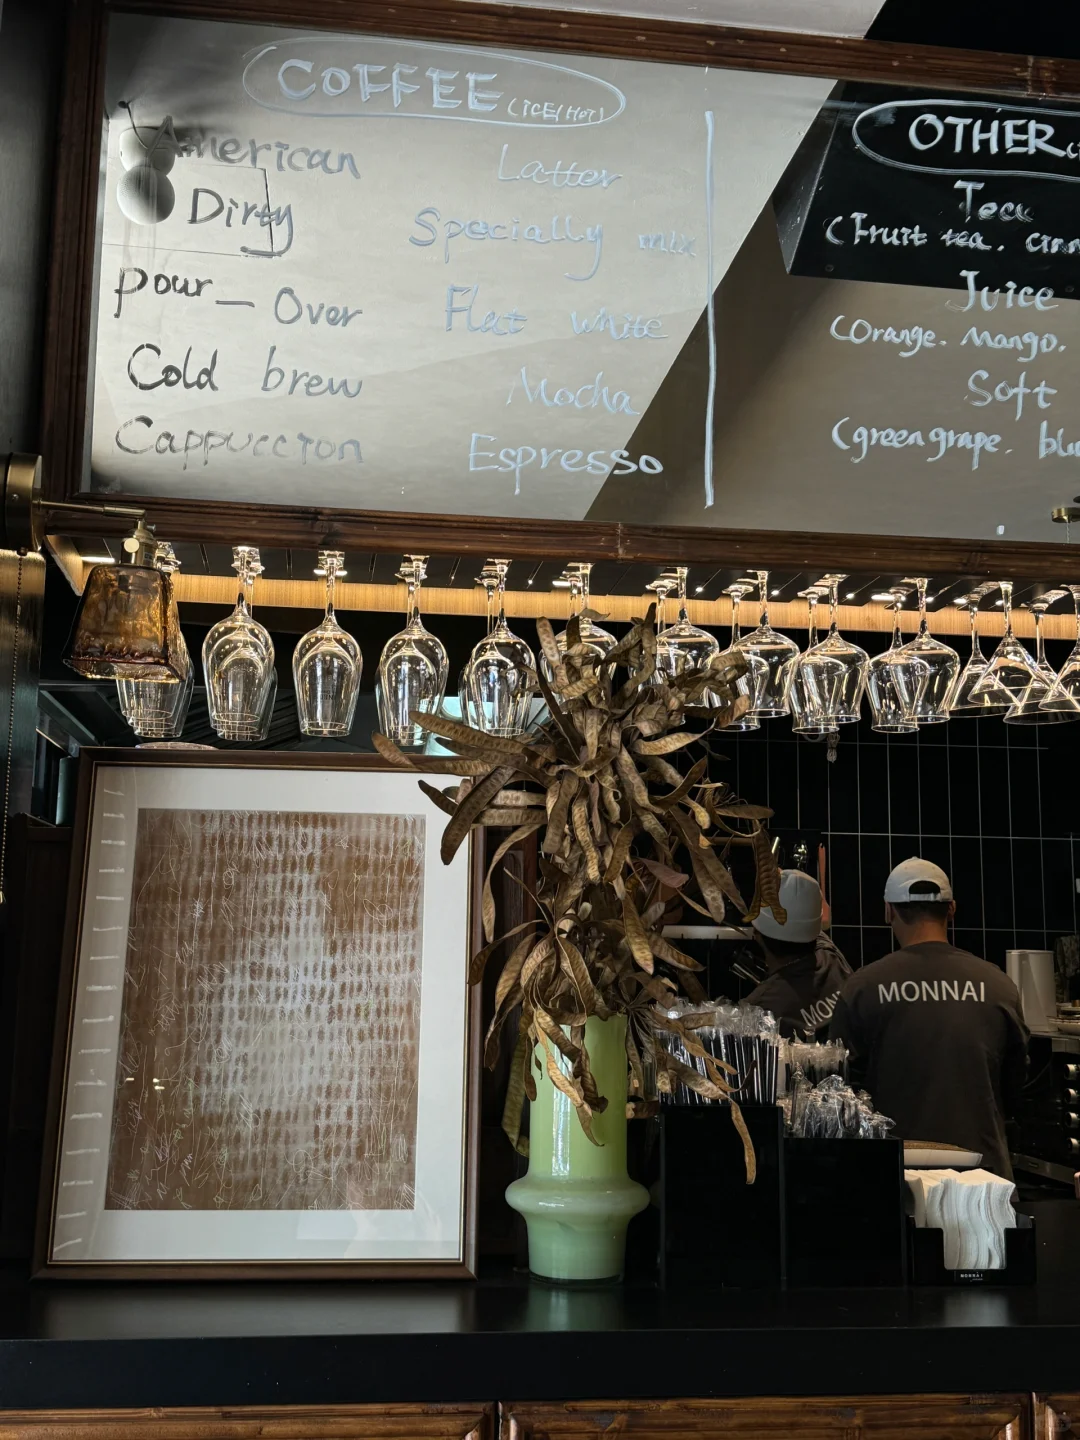 COFFEE (ICE/HOT)
American
Latter
Dirty
Specially mix
Pour - Over
Flat white
Cold brew
Mocha
Cappuccion
Espresso
OTHER
Tea
(Fruit tea. cinn
Juice
(Orange. Mango.
Soft
(green grape. blu
MONNAI
MONN
MONNAI